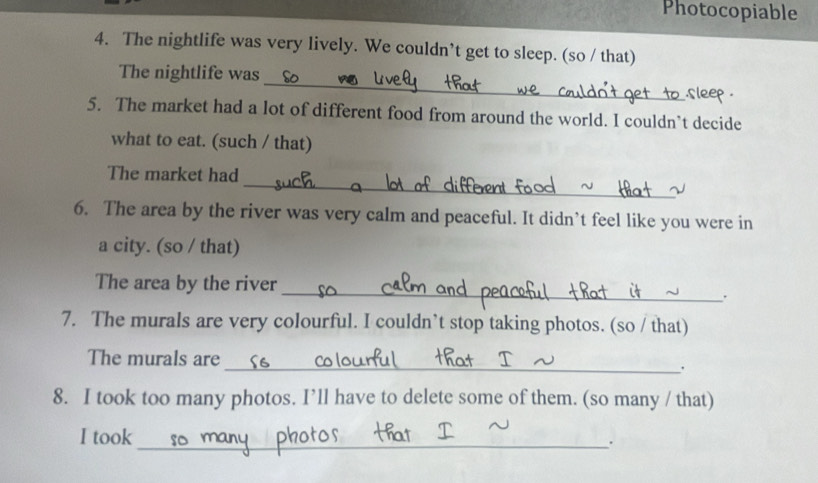 Photocopiable
4. The nightlife was very lively. We couldn't get to sleep. (so / that)
The nightlife was so lively that we couldn't get to sleep.
5. The market had a lot of different food from around the world. I couldn't decide
what to eat. (such / that)
The market had such a lot of different food ~ that ~
6. The area by the river was very calm and peaceful. It didn't feel like you were in
a city. (so / that)
The area by the river so calm and peaceful that it ~.
7. The murals are very colourful. I couldn't stop taking photos. (so / that)
The murals are so colourful that I ~.
8. I took too many photos. I'll have to delete some of them. (so many / that)
I took so many photos that I ~.